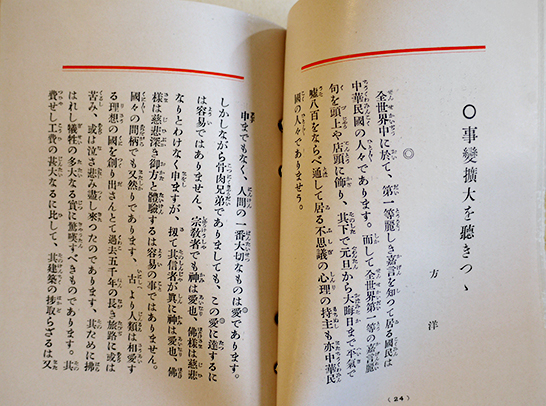 〇事變擴大を聽きつゝ
方洋
◎
全世界中に於て、第一等麗しき嘉言を知つて居る國民は
中華民國の人々であります。而して全世界第一等の嘉言麗
句を頭上や店頭に飾り、其下で元旦から大晦日まで不氣で
噓八百をならべ通して居る不思議の心理の持主も亦中華民
國の人々でありませう。
(24)
◎
申までもなく、人間の一番大切なものは愛であります。
しかしながら骨肉兄弟でありましても、この愛に達するに
は容易ではありません、宗敎者でも神は愛也、佛は慈悲
なりとわけなく申ますが、扨て其信者が眞に神は愛也、佛
樣は慈悲深き御方と體驗するは容易の事ではありません。
國々の間柄でも又然りであります、古より人類は相愛す
る理想の國を創り出さんとて過去五千年の長き旅路に或は
苦み、或は泣き悲み盡し來つたのであります、其ために拂
はれし犠牲の多大なる實に驚嘆すべきものであります。其
費せし工費の甚大なるに比して、其建築の捗取らざるは又